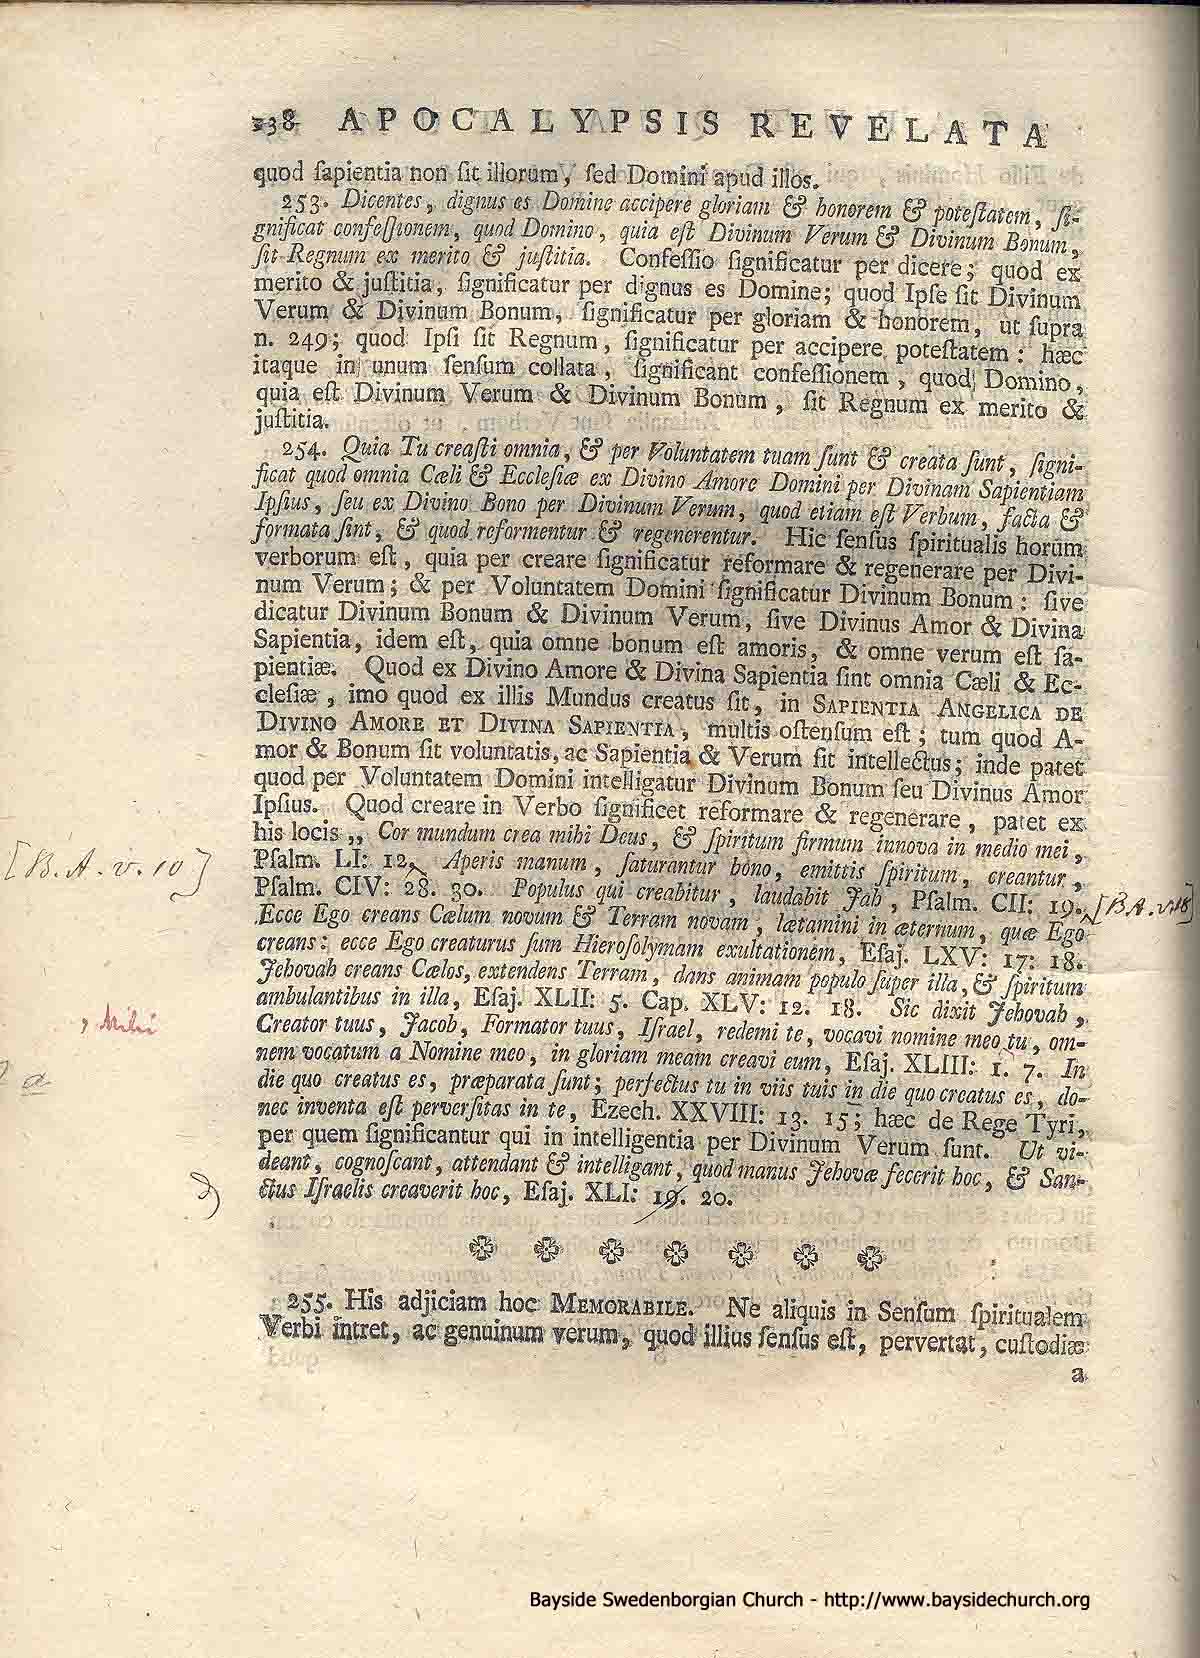 238 APOCALYPSIS REVELATA
quod ſapientia non ſit illorum, ſed Domini apud illos.
253. Dicentes, dignus es Domine accipere gloriam & honorem & poteſtatem, ſi-
gnificat confeſſionem, quod Domino, quia eſt Divinum Verum & Divinum Bonum,
ſit Regnum ex merito & juſtitia. Confeſſio ſignificatur per dicere; quod ex
merito & juſtitia, ſignificatur per dignus es Domine; quod Ipſe ſit Divinum
Verum & Divinum Bonum, ſignificatur per gloriam & honorem, ut ſupra
n. 249; quod Ipſi ſit Regnum, ſignificatur per accipere poteſtatem: hæc
itaque in unum ſenſum collata, ſignificant confeſſionem, quod Domino,
quia eſt Divinum Verum & Divinum Bonum, ſit Regnum ex merito &
juſtitia.
254. Quia Tu creaſti omnia, & per Voluntatem tuam ſunt & creata ſunt, ſigni-
ficat quod omnia Cæli & Eccleſiæ ex Divino Amore Domini per Divinam Sapientiam
Ipſius, ſeu ex Divino Bono per Divinum Verum, quod etiam eſt Verbum, facta &
formata ſint, & quod reformentur & regenerentur. Hic ſenſus ſpiritualis horum
verborum eſt, quia per creare ſignificatur reformare & regenerare per Divi-
num Verum; & per Voluntatem Domini ſignificatur Divinum Bonum: ſive
dicatur Divinum Bonum & Divinum Verum, ſive Divinus Amor & Divina
Sapientia, idem eſt, quia omne bonum eſt amoris, & omne verum eſt ſa-
pientiæ. Quod ex Divino Amore & Divina Sapientia ſint omnia Cæli & Ec-
cleſiæ, imo quod ex illis Mundus creatus ſit, in SAPIENTIA ANGELICA DE
DIVINO AMORE ET DIVINA SAPIENTIA, multis oſtenſum eſt; tum quod A-
mor & Bonum ſit voluntatis, ac Sapientia & Verum ſit intellectus; inde patet
quod per Voluntatem Domini intelligatur Divinum Bonum ſeu Divinus Amor
Ipſius. Quod creare in Verbo ſignificet reformare & regenerare, patet ex
his locis,, Cor mundum crea mihi Deus, & ſpiritum firmum innova in medio mei,
[B.A. v. 10] Pſalm. LI: 12. Aperis manum, ſaturantur bono, emittis ſpiritum, creantur,
Pſalm. CIV: 28. 30. Populus qui creabitur, laudabit Jah, Pſalm. CII: 19. [B.A. v. 18]
Ecce Ego creans Cælum novum & Terram novam, lætamini in æternum, quæ Ego
creans: ecce Ego creaturus ſum Hieroſolymam exultationem, Eſaj. LXV: 17: 18.
Jehovah creans Cælos, extendens Terram, dans animam populo ſuper illa, & ſpiritum
ambulantibus in illa, Eſaj. XLII: 5. Cap. XLV: 12. 18. Sic dixit Jehovah,
, Mihi Creator tuus, Jacob, Formator tuus, Iſrael, redemi te, vocavi nomine meo tu, om-
nem vocatum a Nomine meo, in gloriam meam creavi eum, Eſaj. XLIII: 1. 7. In
a die quo creatus es, præparata ſunt; perfectus tu in viis tuis in die quo creatus es, do-
nec inventa eſt perverſitas in te, Ezech. XXVIII: 13. 15; hæc de Rege Tyri,
per quem ſignificantur qui in intelligentia per Divinum Verum ſunt. Ut vi-
deant, cognoſcant, attendant & intelligant, quod manus Jehovæ fecerit hoc, & San-
ctus Iſraelis creaverit hoc, Eſaj. XLI: 19. 20.
255. His adjiciam hoc MEMORABILE. Ne aliquis in Senſum ſpiritualem
Verbi intret, ac genuinum verum, quod illius ſenſus eſt, pervertat, cuſtodiæ
a
Bayside Swedenborgian Church - http://www.baysidechurch.org